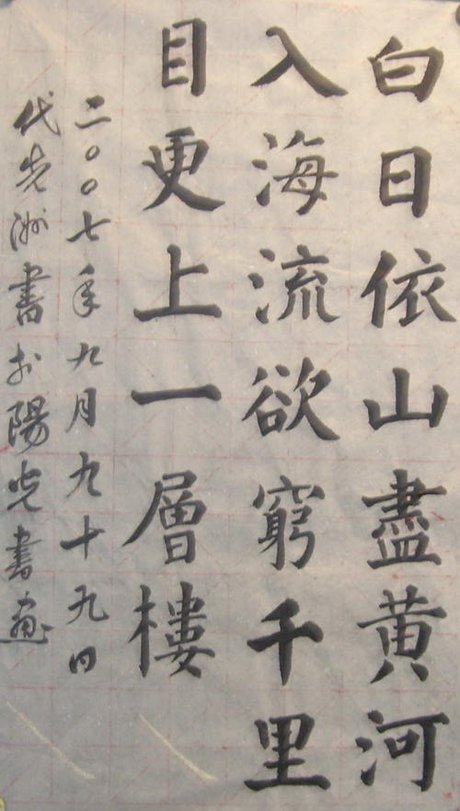 白日依山盡黄河
入海流欲窮千里
目更上一層樓
二〇〇七年九月九十九日
代先洲書於陽光書畫